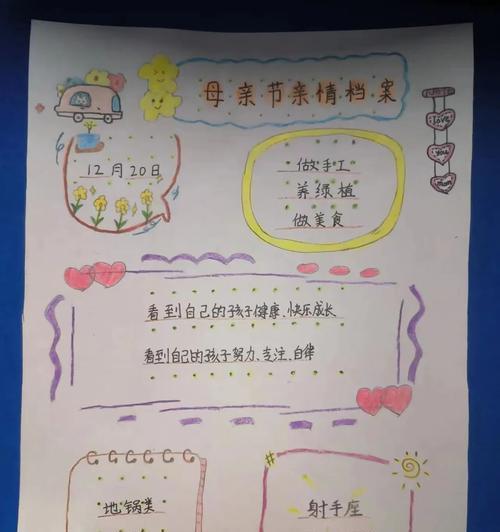 母亲节亲情档案
12月20日
做手工
养绿植
做美食
Love
you
mom
看到自己的孩子健康、快乐成长
看到自己的孩子努力、专注、自律
地锅类
射手座